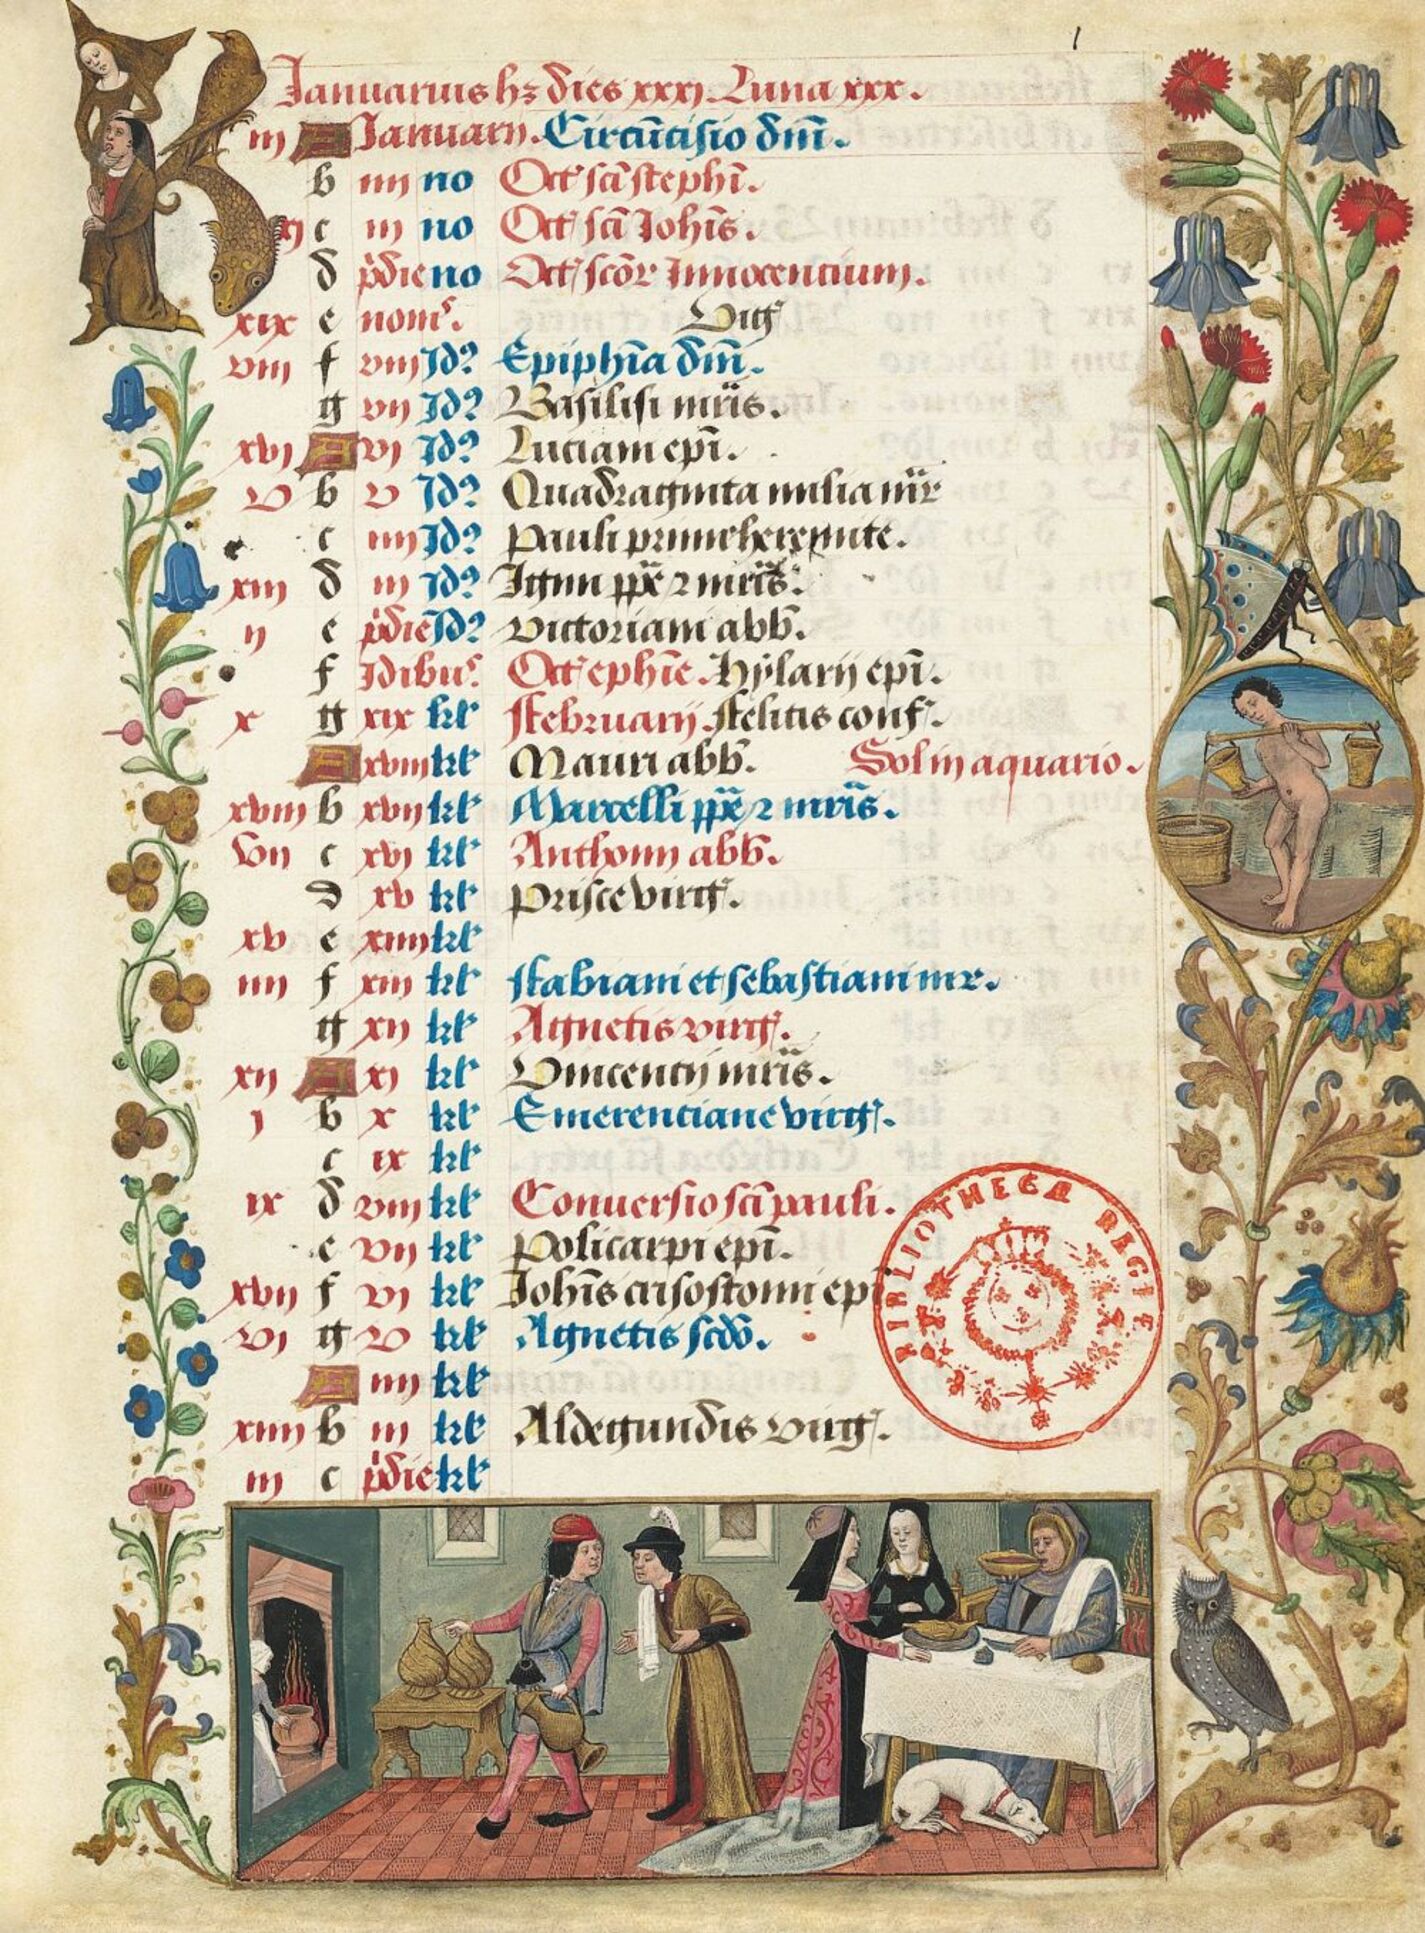 1
Januarius hz dies xxxj. Luna xxx.
iij A Januarij. Circūcisio dm̄i.
b iiij no Oct' scī stephī.
xj c iij no Oct' scī Johīs.
d p̄die no Oct' scōr Innocencium.
xix e noīs. Vig'
viij f viij Id9 Epiphīa dm̄i.
g vij Id9 Basilisi mr̄is.
xvj A vj Id9 Luciani epī.
v b v Id9 Quadraginta milia mr̄
c iiij Id9 Pauli primi heremite.
xiij d iij Id9 Igini pp̄e 2 mr̄is.
ij e p̄die Id9 Victoriani abb̄.
f Idibus Oct' ephīe. Hylarij epī.
x g xix kl' Februarij. Felicis conf'.
A xviij kl' Mauri abb̄. Sol in aquario.
xviij b xvij kl' Marcelli pp̄e 2 mr̄is.
vij c xvj kl' Anthonij abb̄.
d xv kl' Prisce virg'.
xv e xiiij kl'
iiij f xiij kl' Fabiani et sebastiani mr.
g xij kl' Agnetis virg'.
xij A xj kl' Vincencij mr̄is.
j b x kl' Emerenciane virg'.
c ix kl'
ix d viij kl' Conversio scī pauli.
e vij kl' Policarpi epī.
xvij f vj kl' Johīs crisostomi epī
vj g v kl' Agnetis scdō.
A iiij kl'
xiiij b iij kl' Aldegundis virg'.
iij c p̄die kl'
BIBLIOTHECÆ REGIÆ